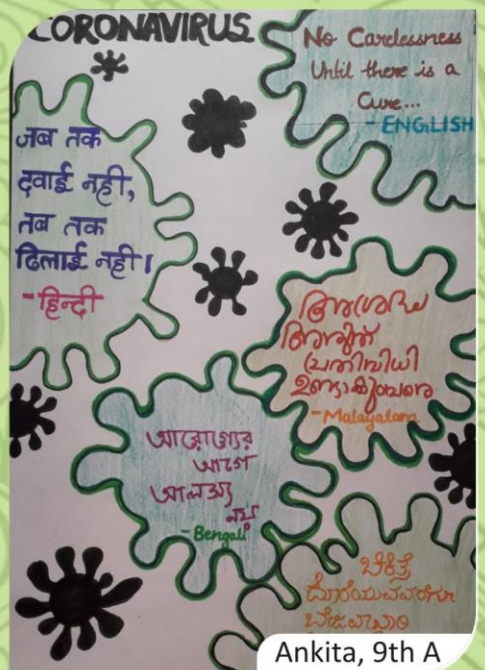 CORONAVIRUS
No Carelessness
Until there is a
Cure...
- ENGLISH
जब तक
दवाई नही,
तब तक
ढिलाई नही।
-हिन्दी
അശ്രദ്ധ
അരുത്
പ്രതിവിധി
ഉണ്ടാകുംവരെ
-Malayalam
আরোগ্যের
আগে
আলস্য
নয়
-Bengali
ಚಿಕಿತ್ಸೆ
ದೊರೆಯುವವರೆಗೂ
Ankita, 9th A